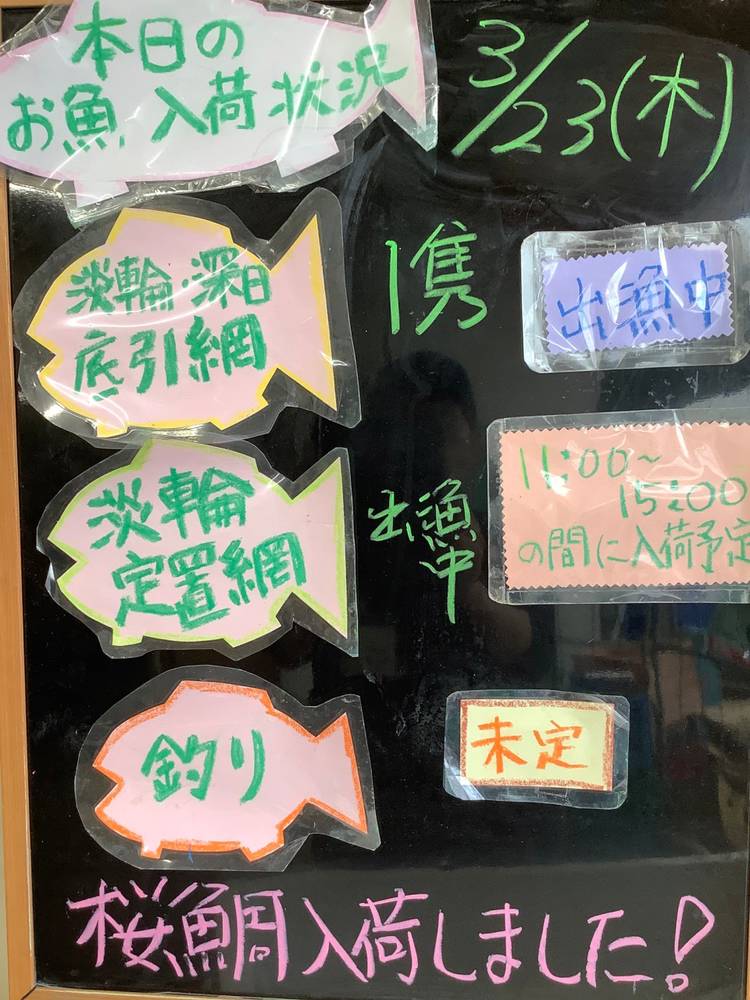 本日の
お魚 入荷状況
3/23(木)
淡輪・深日
底引網
1隻
出漁中
淡輪
定置網
出漁
中
11:00~
15:00
の間に入荷予定
釣り
未定
桜鯛入荷しました!